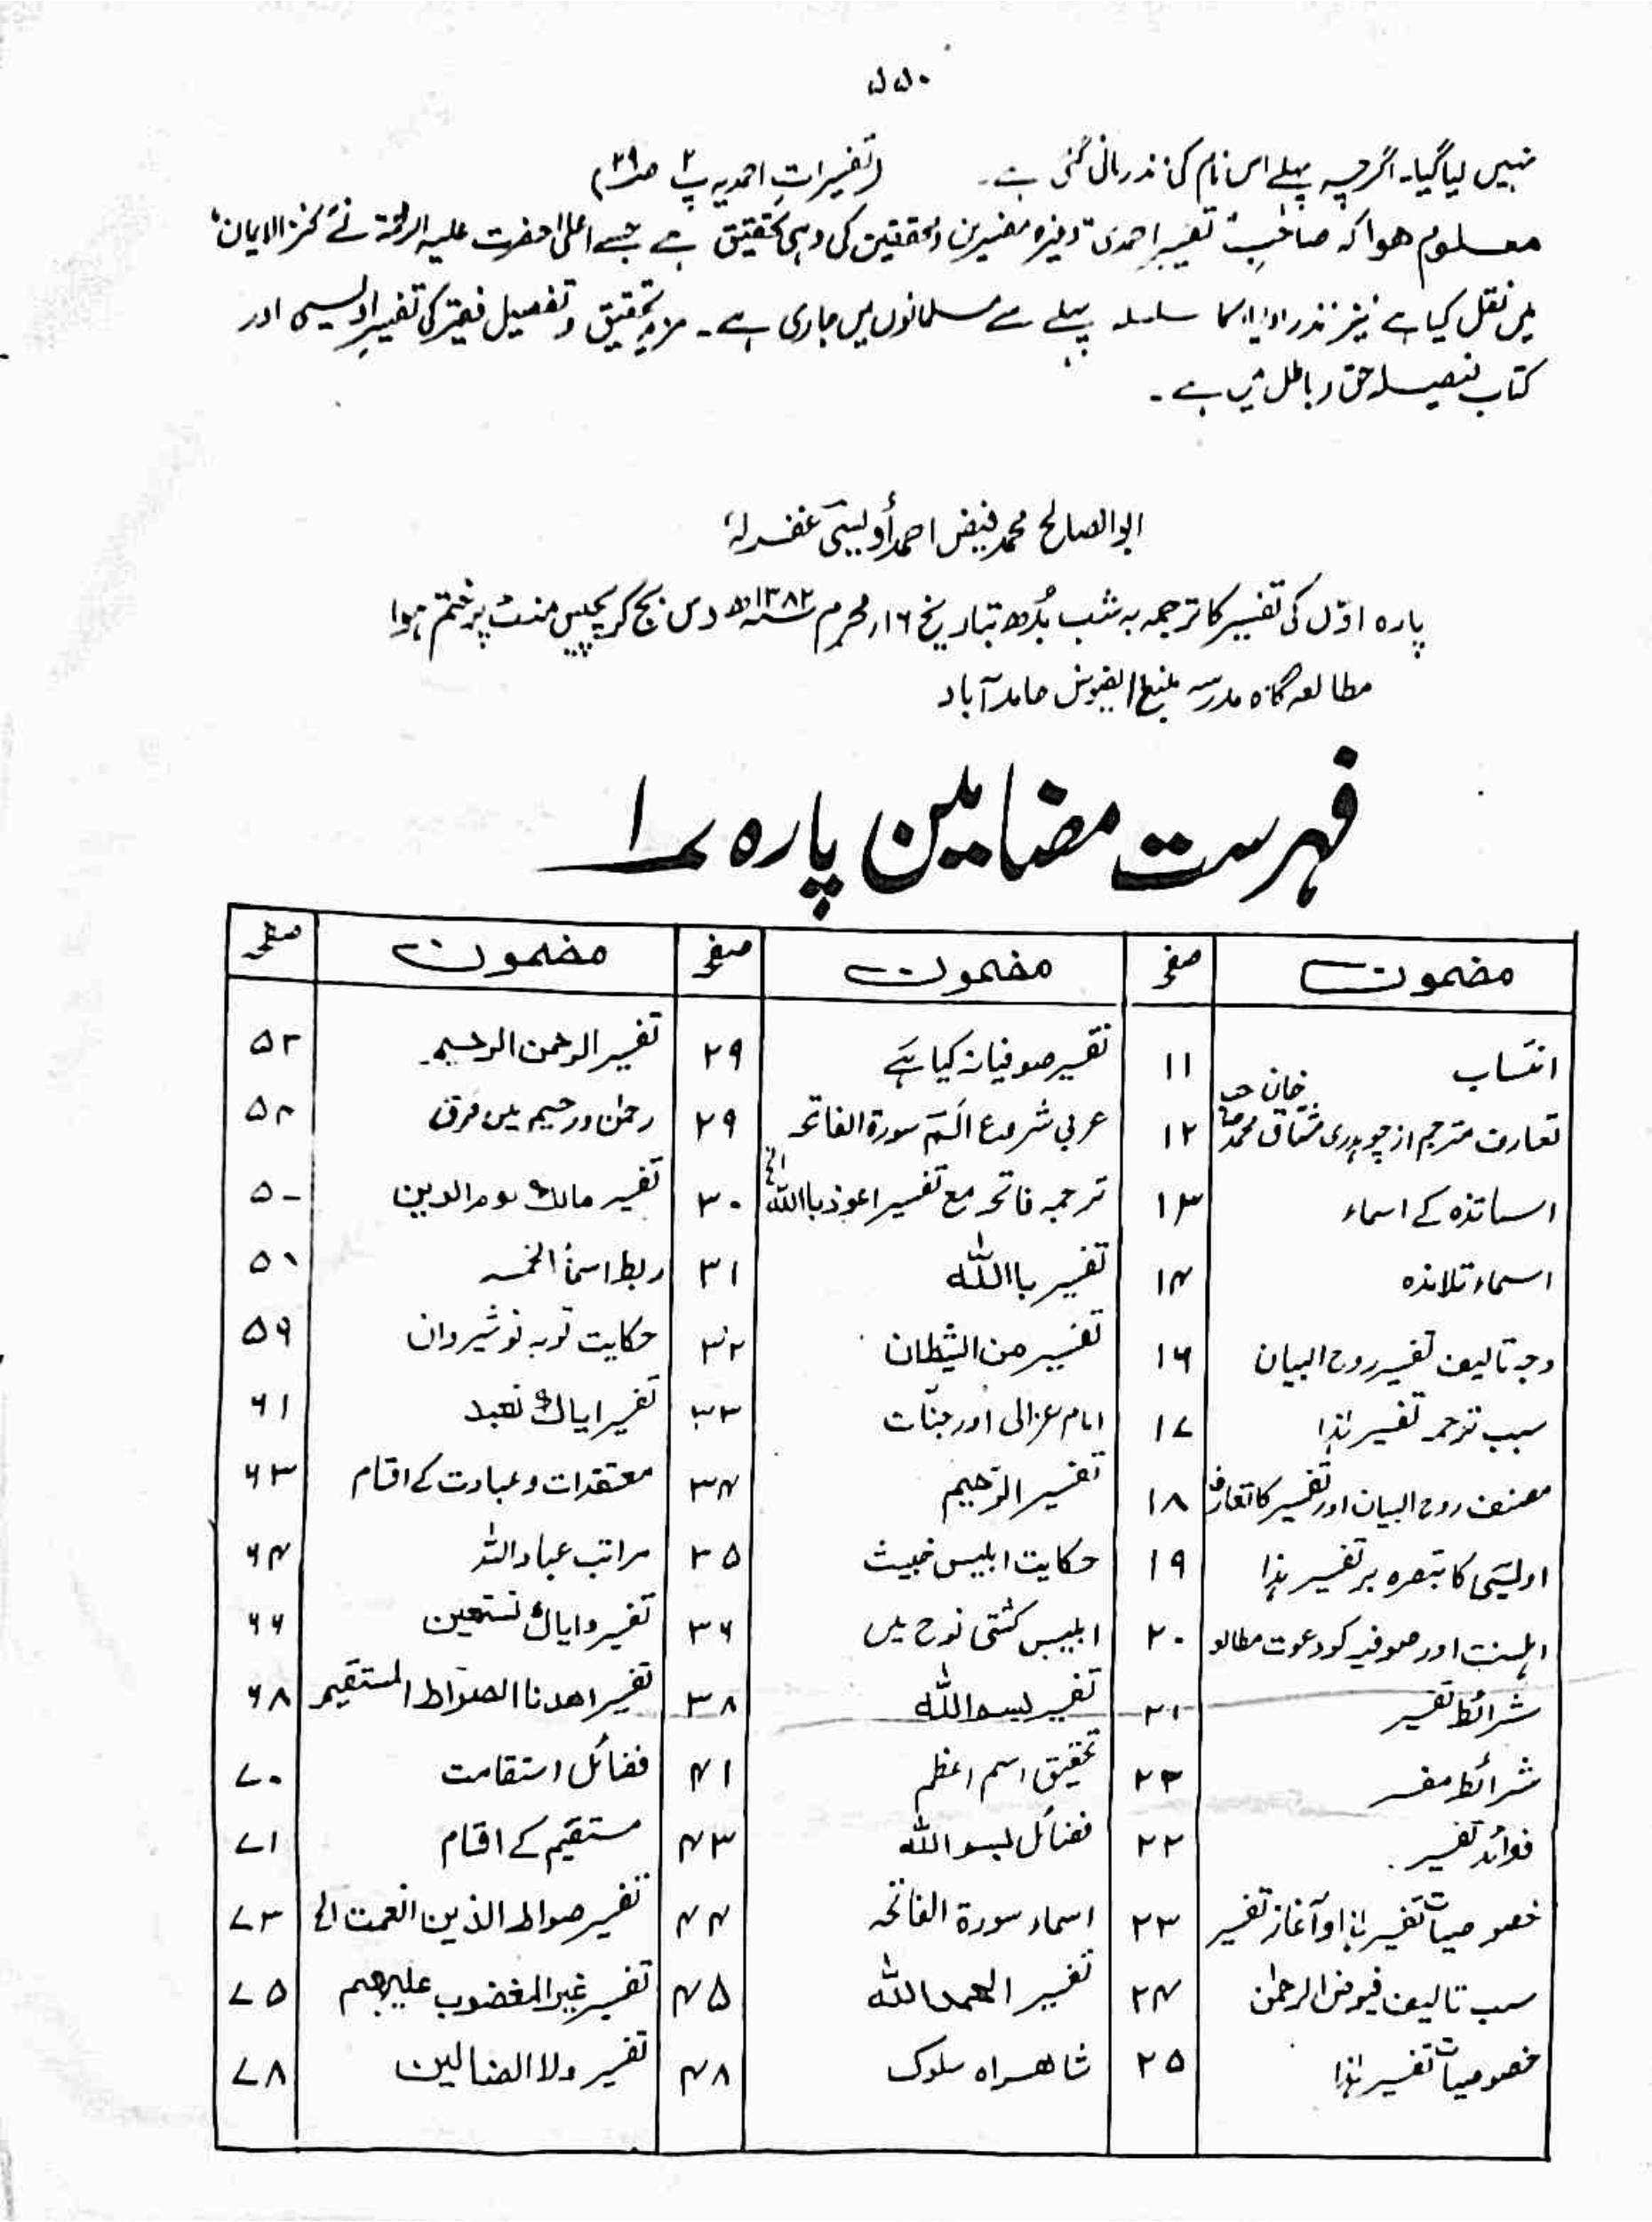 ۵۵۰
نہیں لیا گیا۔ اگرچہ پہلے اس نام کی نذر مانی گئی ہے۔ (تفسیراتِ احمدیہ پ۲ ص۲۹)
معلوم ھوا کہ صاحبِ تفسیر احمدی وغیرہ مفسرین و محققین کی وہی تحقیق ہے جسے اعلیٰحضرت علیہ الرحمۃ نے کنز الایمان
میں نقل کیا ہے نیز نذر اولیاء کا سلسلہ پہلے سے مسلمانوں میں جاری ہے۔ مزید تحقیق و تفصیل فقیر کی تفسیر اویسی اور
کتاب فیصلہ حق و باطل میں ہے۔
ابو الصالح محمد فیض احمد أویسی غفرلہٗ
پارہ اوّل کی تفسیر کا ترجمہ بہ شب بُدھ بتاریخ ۱۶؍ محرم ۱۳۸۲ھ دس بج کر پچیس منٹ پر ختم ہوا
مطالعہ گاہ مدرسہ منبع الفیوض حامد آباد
فہرست مضامین پارہ ۱
مضمون صفحہ مضمون صفحہ مضمون صفحہ
انتساب ۱۱ تفسیر صوفیانہ کیا ہے ۲۹ تفسیر الرحمن الرحیم ۵۲
تعارف مترجم از چوہدری مشتاق محمد خان صاحب ۱۲ عربی شروع الٓمٓ سورۃ الفاتحہ ۲۹ رحمٰن و رحیم میں فرق
اساتذہ کے اسماء ۱۳ ترجمہ فاتحہ مع تفسیر اعوذ باللہ الخ ۳۰ تفسیر مالک یوم الدین
اسماء تلامذہ ۱۴ تفسیر باللہ ۳۱ ربط اسمأ الخمسہ
وجہ تالیف تفسیر روح البیان ۱۶ تفسیر من الشیطان ۳۲ حکایت توبہ نوشیروان ۵۹
سبب ترجمہ تفسیر ہٰذا ۱۷ امام غزالی اور جنّات ۳۳ تفسیر ایاک نعبد ۶۱
مصنف روح البیان اور تفسیر کا تعارف ۱۸ تفسیر الرّجیم ۳۴ معتقدات و عبادت کے اقسام ۶۳
اویسی کا تبصرہ بر تفسیر ہذا ۱۹ حکایت ابلیس خبیث ۳۵ مراتب عباد اللہ ۶۴
اہلسنت اور صوفیہ کو دعوت مطالعہ ۲۰ ابلیس کشتی نوح میں ۳۶ تفسیر و ایاک نستعین ۶۶
شرائط تفسیر ۲۱ تفسیر بسم اللہ ۳۸ تفسیر اھدنا الصراط المستقیم ۶۸
شرائط مفسر ۲۲ تحقیق اسم اعظم ۴۱ فضائل استقامت ۷۰
فوائد تفسیر ۲۲ فضائل بسم اللہ ۴۳ مستقیم کے اقسام ۷۱
خصوصیات تفسیر ہٰذا و آغاز تفسیر ۲۳ اسماء سورۃ الفاتحہ ۴۴ تفسیر صراط الذین انعمت الخ ۷۳
سبب تالیف فیوض الرحمٰن ۲۴ تفسیر الحمد للہ ۴۵ تفسیر غیر المغضوب علیھم ۷۵
خصوصیات تفسیر ہٰذا ۲۵ شاھراہ سلوک ۴۸ تفسیر ولا الضالین ۷۸